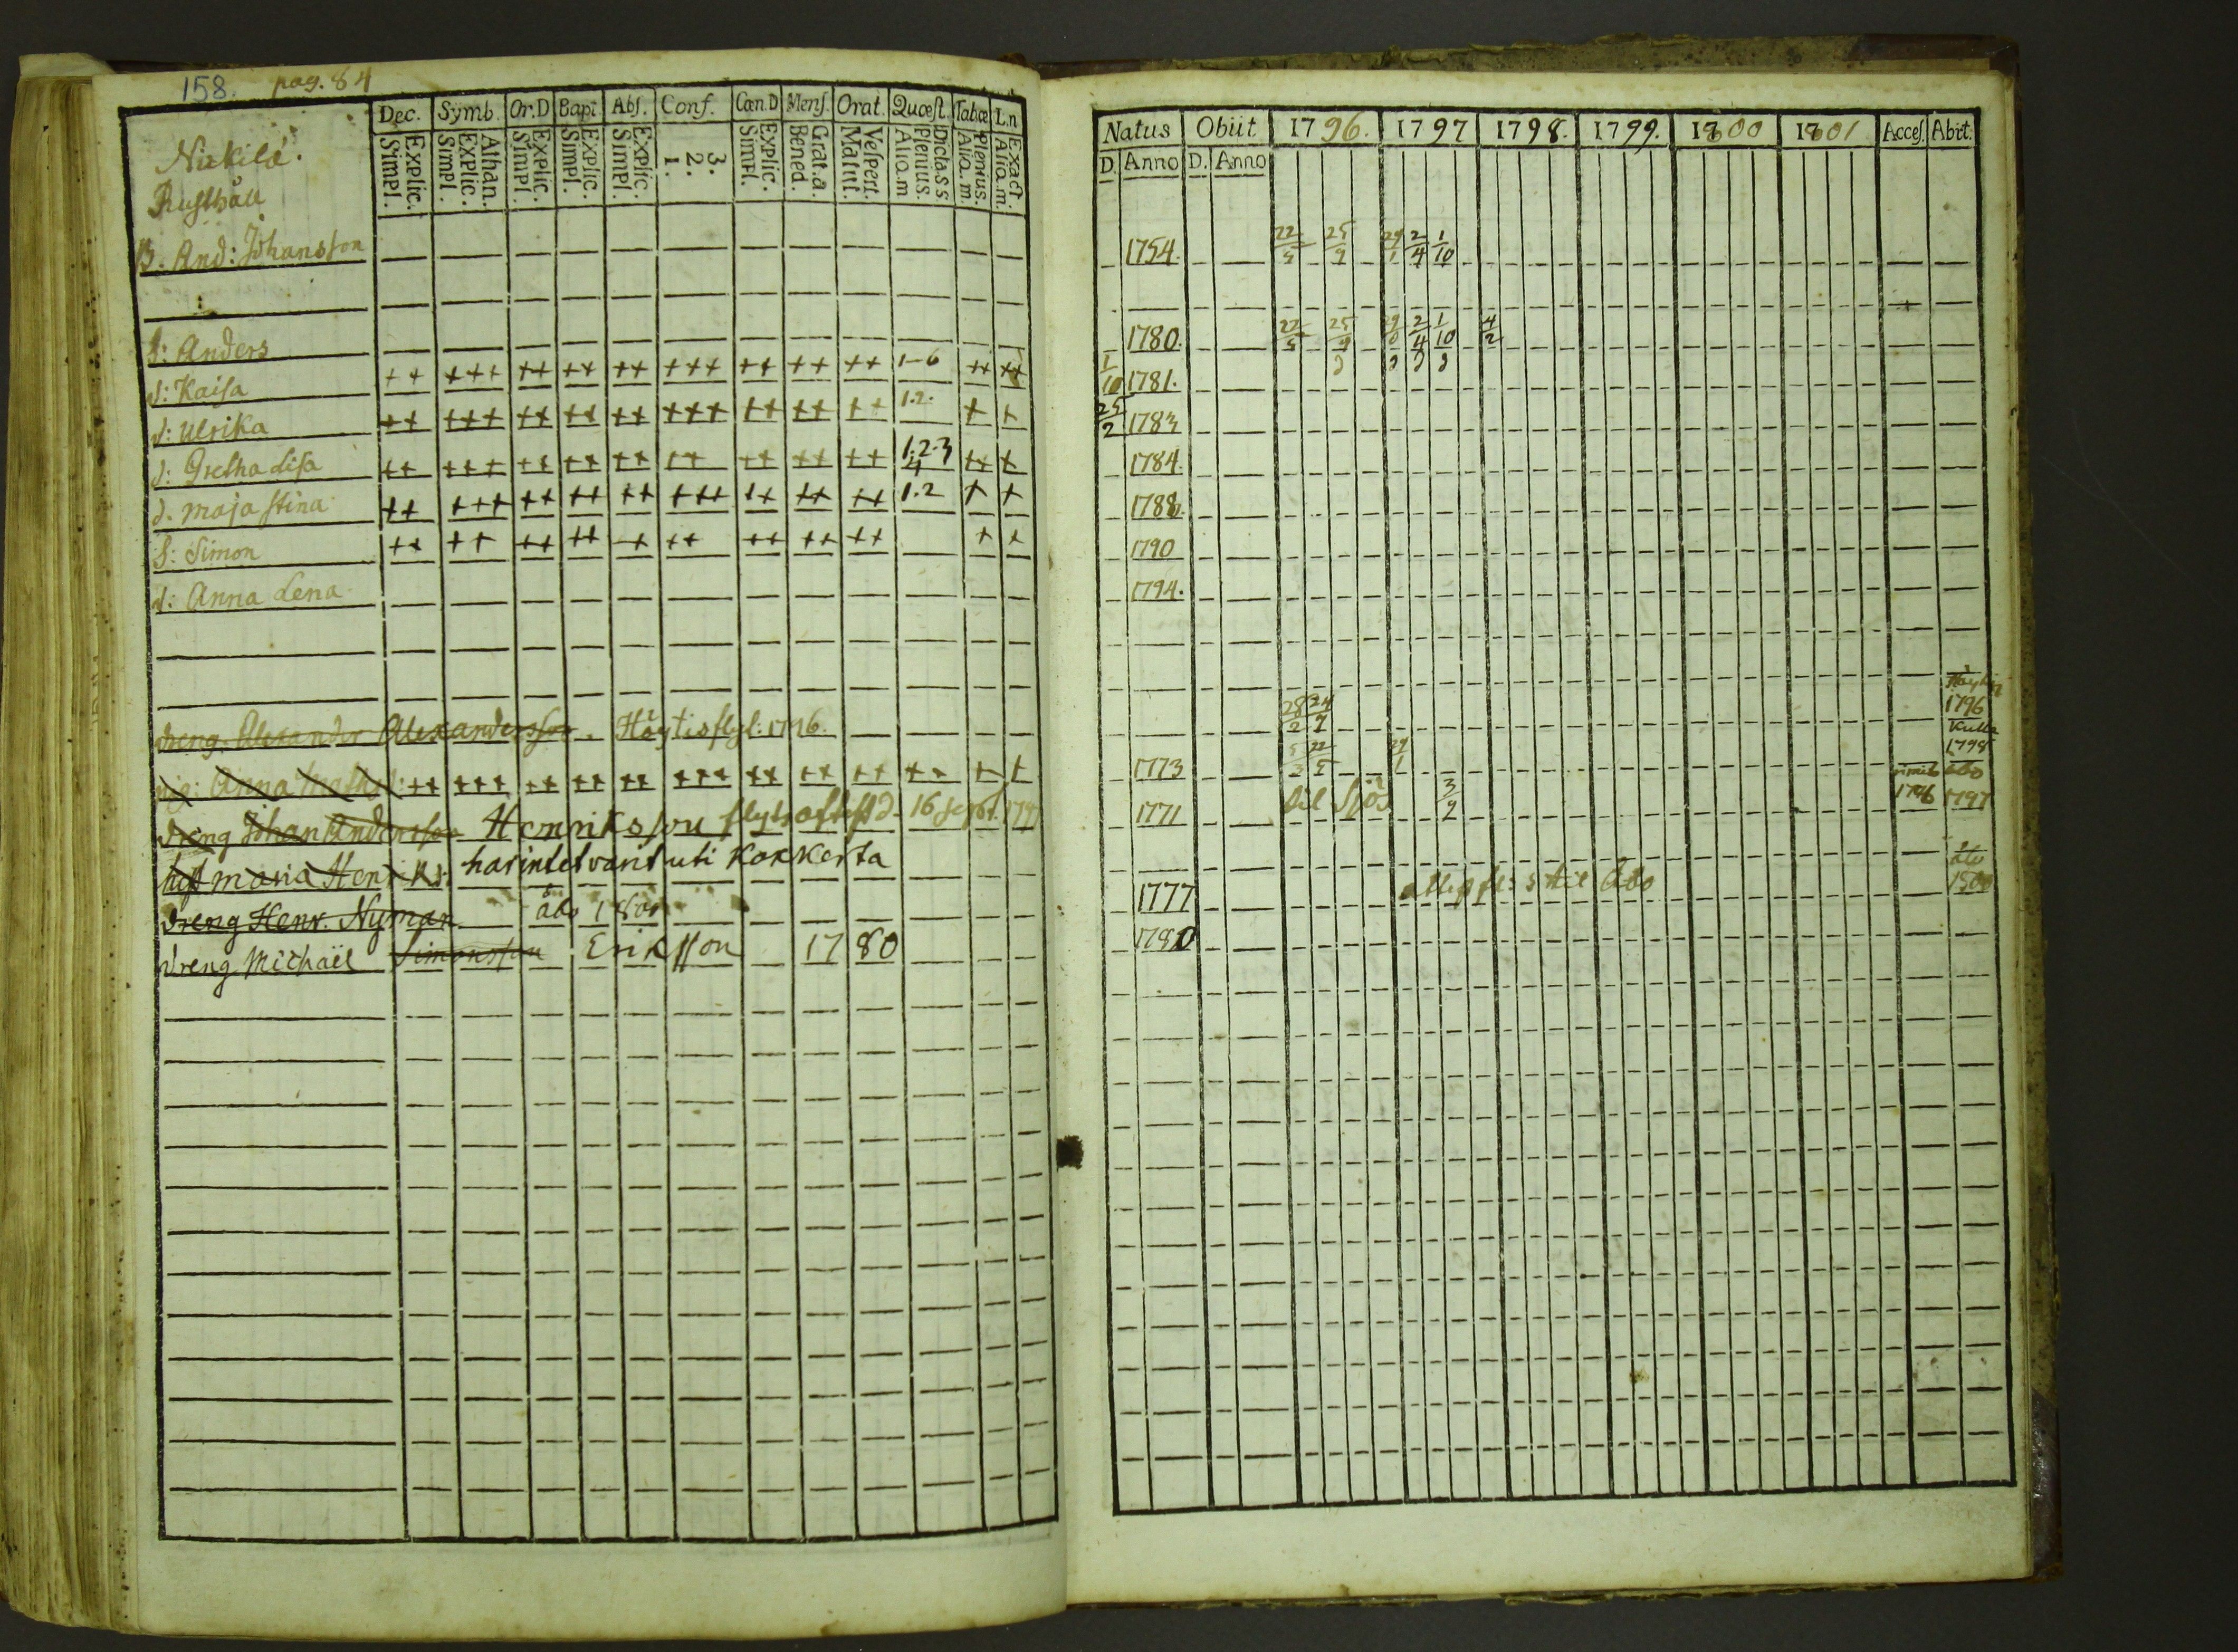 158. pag. 84
Dec. Symb. Or.D Bapt Abs. Conf. Cœn.D Mens. Orat. Quæst. Tabæ L.n
Explic. Simpl. Athan. Explic. Simpl. Explic. Simpl. Explic. Simpl. Explic. Simpl. 3. 2. 1. Explic. Simpl. Grat.a. Bened. Vespert. Matut. Dicta.s s Plenius. Alio.m Plenius. Alio.m. Exact. Alio.m.
Nickilä.
Rusthåll
B. And: Johansson
S: Anders
d: Kaisa ++ +++ ++ ++ ++ +++ ++ ++ ++ 1-6 ++ ++
d: Ulrika ++ +++ ++ ++ ++ +++ ++ ++ ++ 1.2. + +
d: Gretha Lisa ++ +++ ++ ++ ++ ++ ++ ++ ++ 1.2.3 4 ++ +
d. Maja Stina ++ +++ ++ ++ ++ +++ ++ ++ ++ 1.2 + +
S: Simon ++ ++ ++ ++ + ++ ++ ++ ++ + +
d: Anna Lena
dreng. Alexander Alexandersson. Höytis flyt: 1796.
pig: Anna Math: ++ +++ ++ ++ ++ +++ ++ ++ ++ ++ + +
dreng Johan Andersson Henriksson flyt 16 sept. 1797
hust Maria Henrks: har intet varit uti Korkerta
dreng Henr. Nyman åbo 1801
dreng Michaël Simonsson Eriksson 1780
Natus Obiit 1796. 1797 1798. 1799. 1800 1801 Acces. Abiit.
D. Anno D. Anno
1754. 22/5 25/9 29/1 2/4 1/10
1780. 22/5 25/9 29/1 2/4 1/10 4/2
1/10 1781.
25/2 1783
1784.
1788.
1790
1794.
28/2 24/7 1796
Kulla
1798
1773 22/5 29/1
1771 til Sjös 3/9 1796 åbo 1797
1777 til Åbo åbo 1800
1780